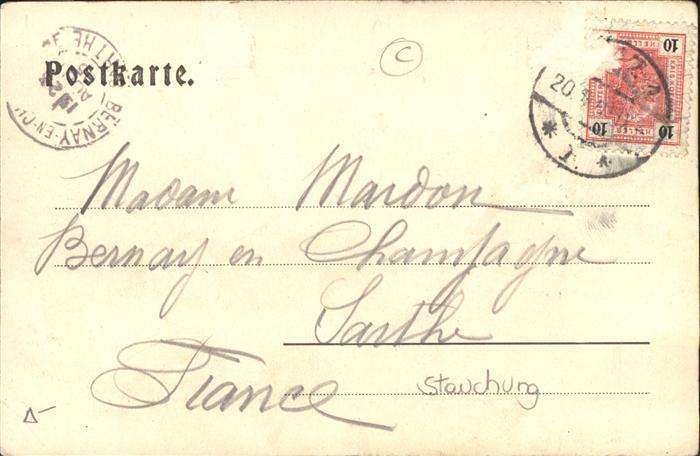 Postkarte.
BERNAY-EN-CH
10
HELLER
10
10
HELLER
20.
Madame Mardon
Bernay en Champagne
Sarthe
France
Stauchung
C